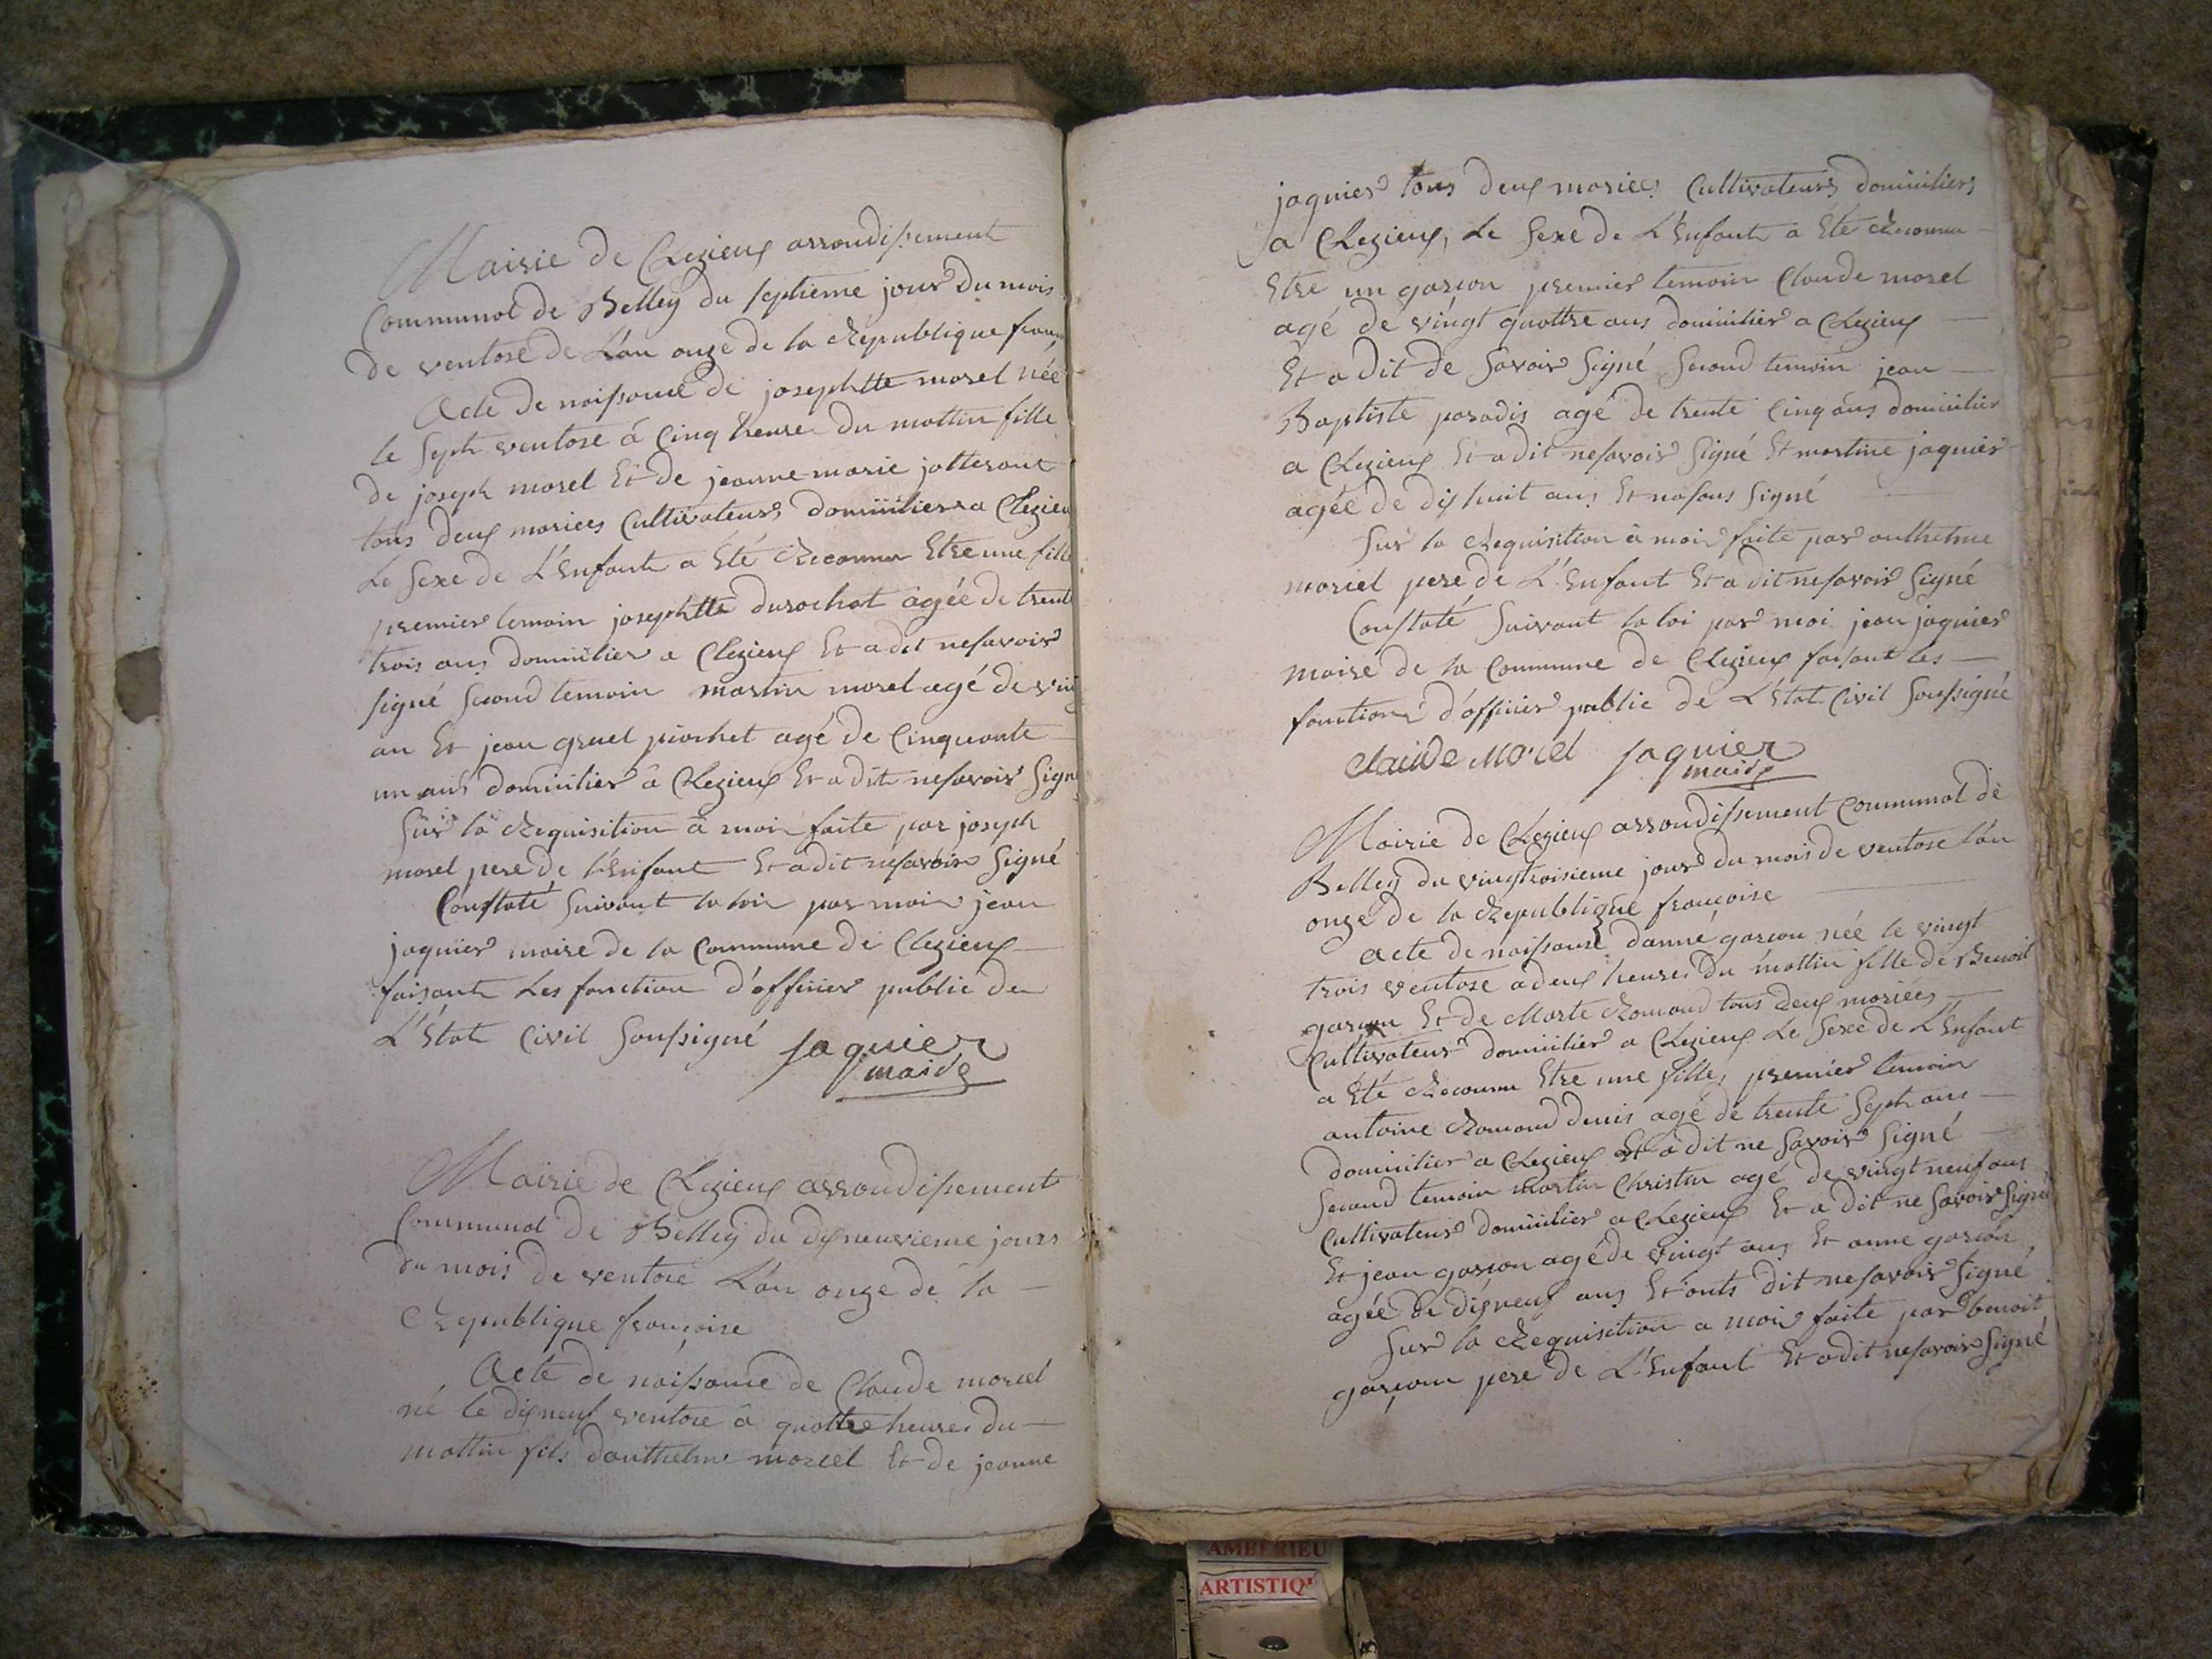 Mairie de Clezieux arrondissement
Communal de Belley du septieme jour du mois
de ventose de L'an onze de la Republique fran
Acte de naissance de josephtte morel née
le sept ventose à Cinq heure du mattin fille
de joseph morel Et de jeanne marie jatterant
tous deux mariees Cultivateurs domicilier a Clezieu
Le sexe de L'Enfant a Eté Reconnu Etre une fille
premier temoin josephtte durochat agée de trente
trois ans domicilier a Clezieux Et a dit ne savoir
signé second temoin martin morel agé de ving
an Et jean gruel piochet agé de Cinquante
un ans domicilier à Clezieux Et a dit ne savoir Signé
Sur la Requisition à moi faite par joseph
morel pere de l'Enfant Et a dit ne savoir Signé
Constaté suivant la loi par moi jean
jaquier maire de la Commune de Clezieux
faisant Les fonction d'officier public de
L'Etat Civil Soussigné jaquier
maire
Mairie de Clezieux arrondissement
Communal de Belley du dixneuvieme jours
du mois de ventose L'an onze de la
Republique françoise
Acte de naissance de Claude morel
né le dixneuf ventose à quattre heure du
mattin fils danthelme morel Et de jeanne
jaquier tous deux mariees Cultivateurs domiciliers
a Clezieux, Le Sexe de L'Enfant a Eté Reconnu
Etre un garcon premier temoin Claude morel
agé de vingt quattre ans domicilier a Clezieux
Et a dit de Savoir Signé Second temoin jean
Baptiste paradis agé de trente Cinq ans domicilier
a Clezieux Et a dit ne savoir Signé Et martine jaquier
agée de dixhuit ans Et na sans Signé
Sur la Requisition à moi faite par anthelme
morel pere de L'Enfant Et a dit ne savoir Signé
Constaté Suivant la loi par moi jean jaquier
maire de la Commune de Clezieux faisant les
fonctions d'officier public de L'Etat Civil Soussigné
claude Morel jaquier
maire
Mairie de Clezieux arrondissement Communal de
Belley du vingtroisieme jour du mois de ventose l'an
onze de la Republique françoise
Acte de naissance danne garcon née le vingt
trois ventose a deux heure du mattin fille de Benoit
garcon Et de Marte Romand tous deux mariées
Cultivateur domicilier a Clezieux Le Sexe de L'Enfant
a Eté Reconnu Etre une fille, premier temoin
antoine Romand denis agé de trente Sept ans
domicilier a Clezieux Et a dit ne Savoir Signé
Second temoin Martin Christin agé de vingt neuf ans
Cultivateur domicilier a Clezieux Et a dit ne Savoir Signé
Et jean garcon agé de vingt ans Et anne garcon
agée de dixneuf ans Et onts dit ne savoir Signé
Sur la Requisition a moi faite par benoit
garçon pere de L'Enfant Et a dit ne savoir Signé
AMBERIEU
ARTISTIQ